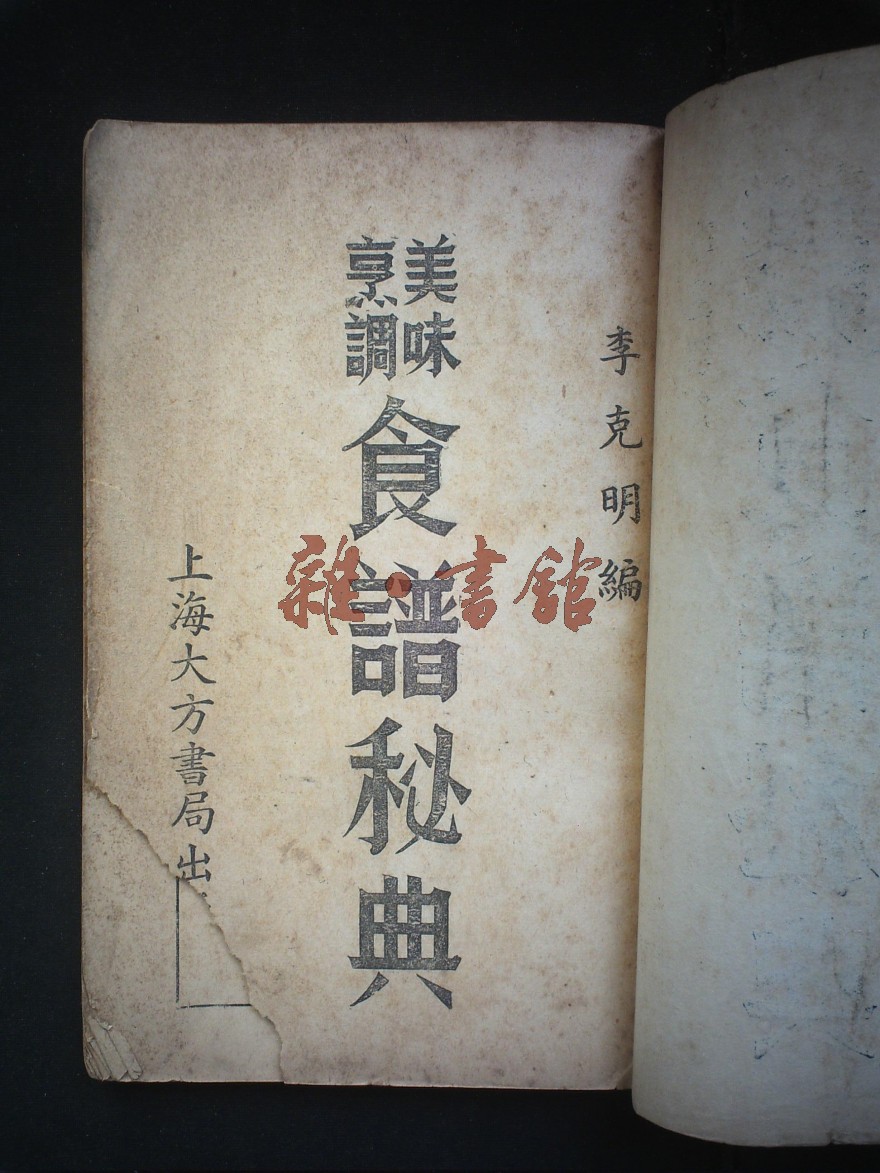 李克明編
美味
烹調
食譜秘典
上海大方書局出
雜·書館